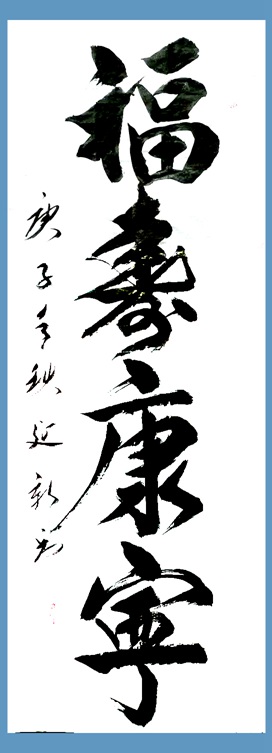 福壽康寧
庚子年秋延新書